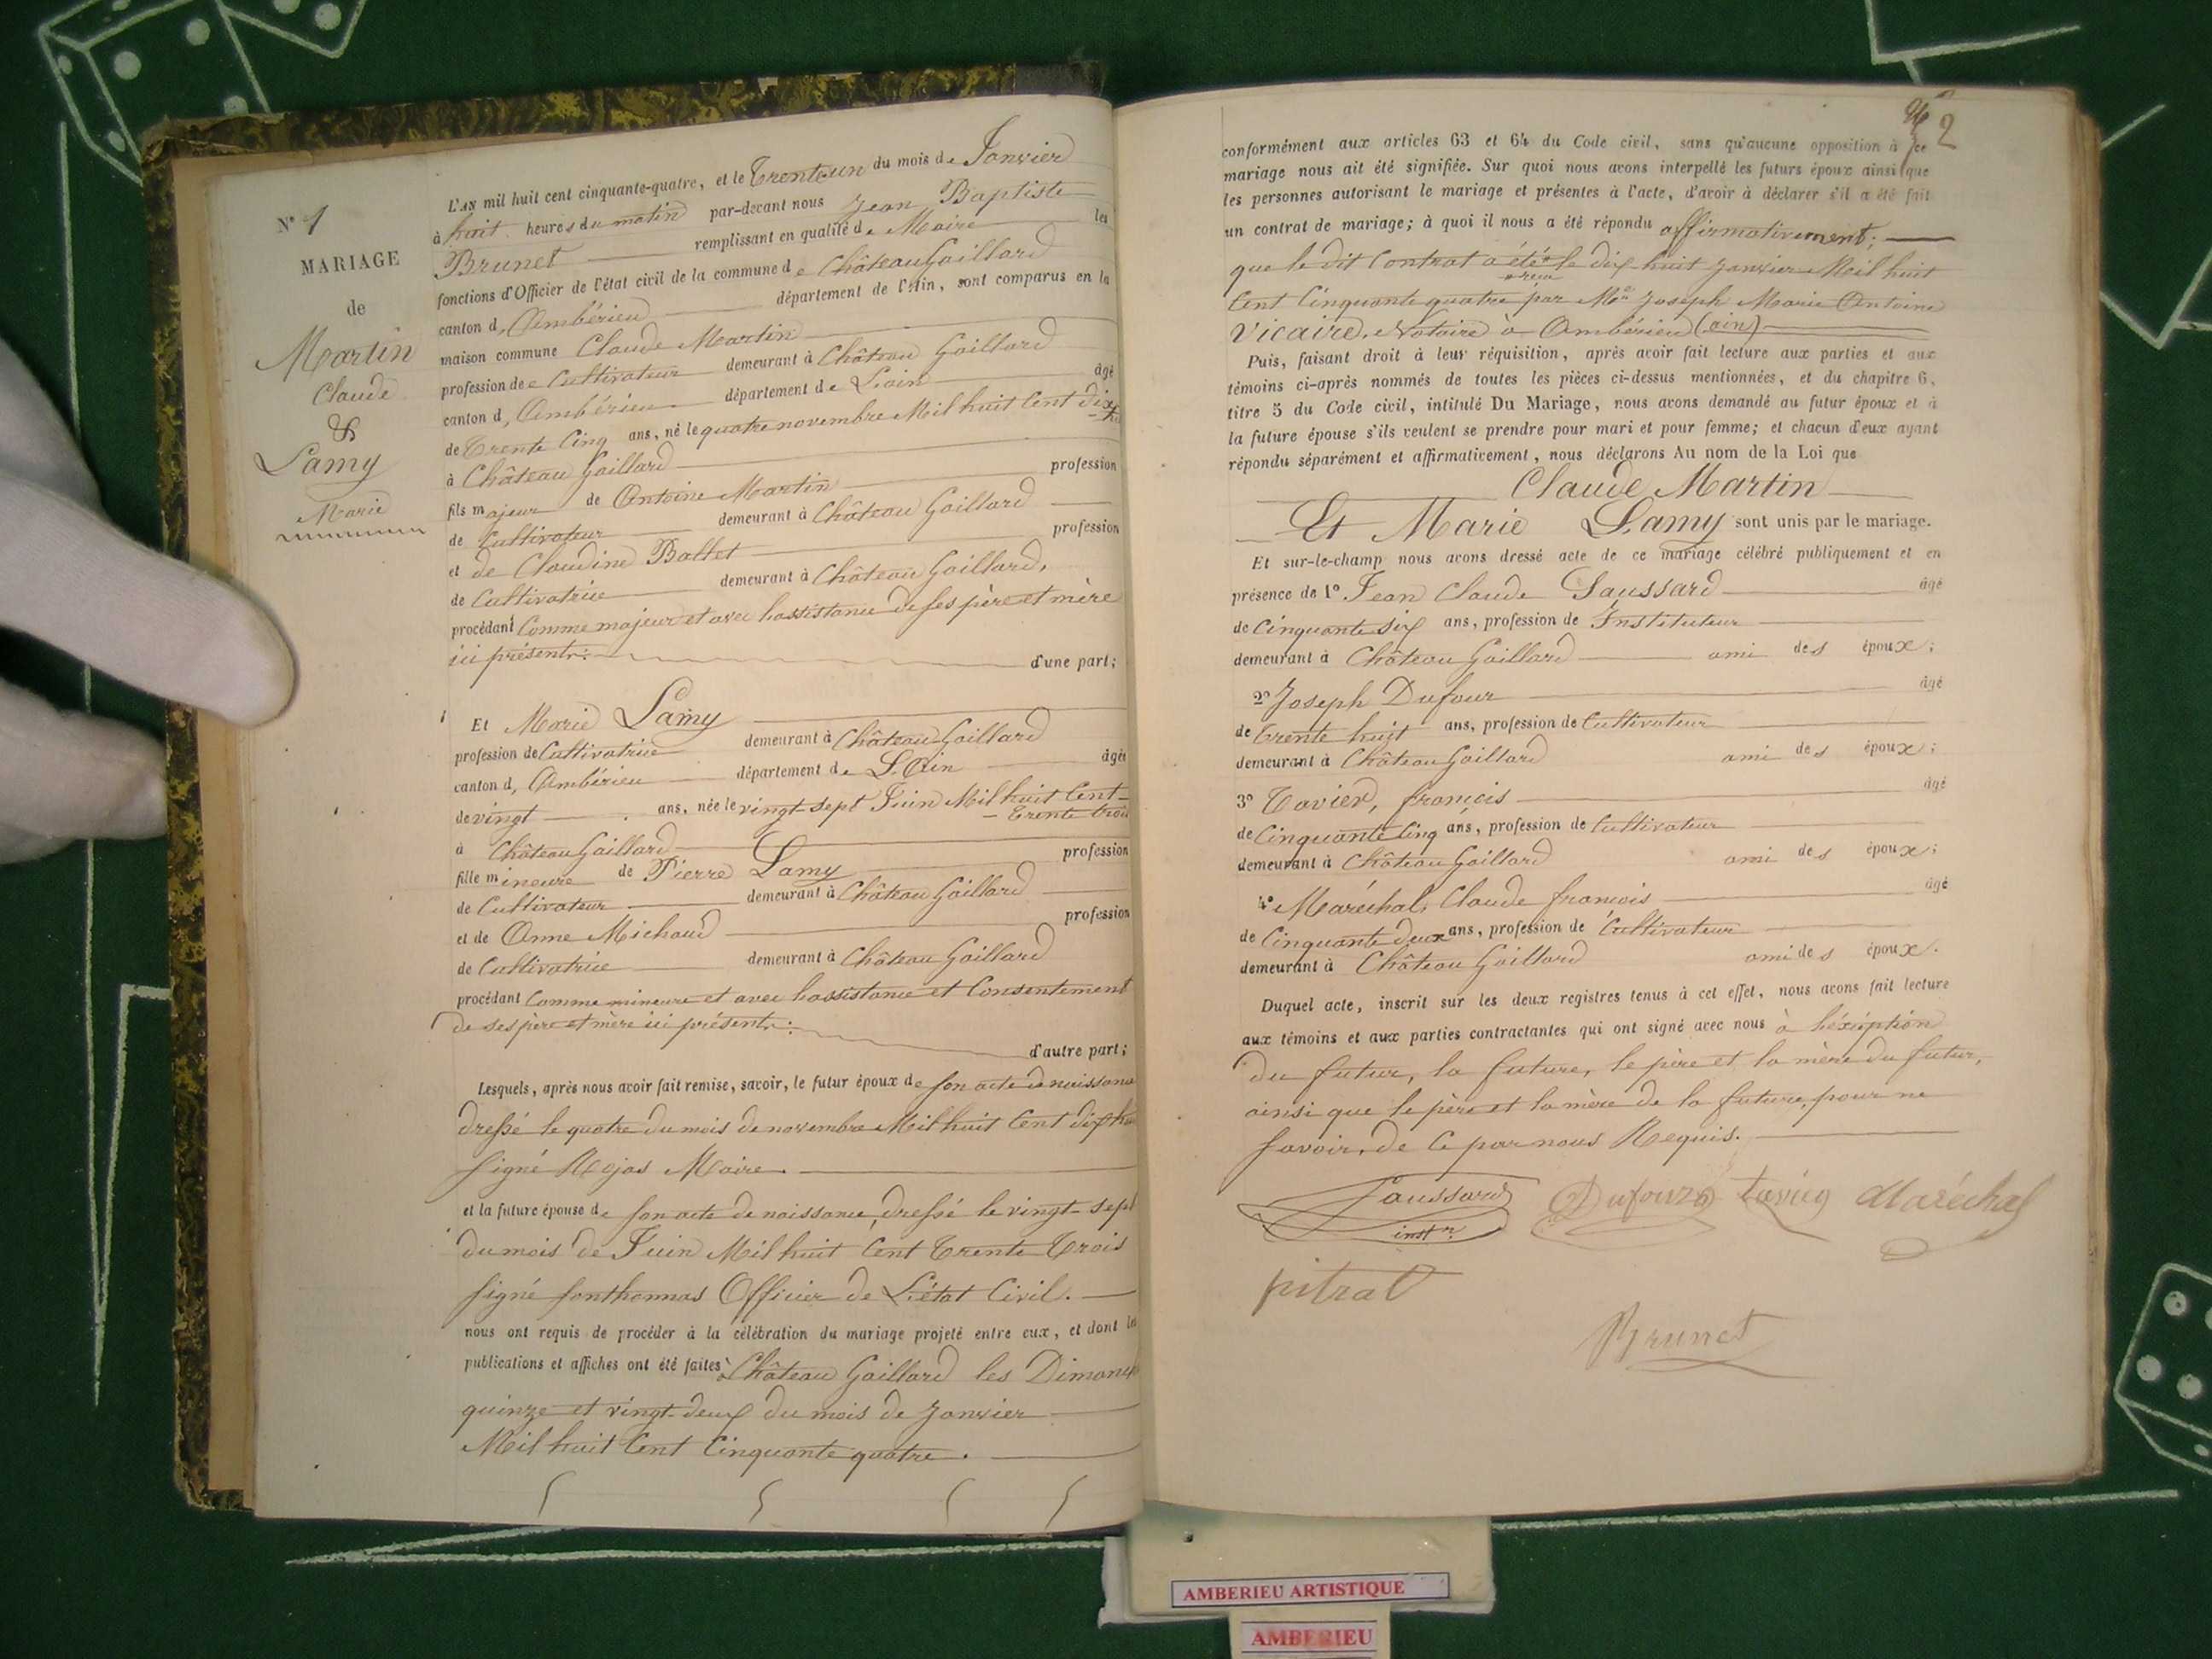 N° 1
MARIAGE
de
Martin
Claude
&
Lamy
Marie
L'AN mil huit cent cinquante-quatre, et le Trente un du mois de Janvier
à huit heures du matin par-devant nous Jean Baptiste
Brunet remplissant en qualité de Maire les
fonctions d'Officier de l'état civil de la commune de Château Gaillard
canton d, Ambérieu département de l'Ain, sont comparus en la
maison commune Claude Martin
profession de Cultivateur demeurant à Château Gaillard
canton d, Ambérieu département de L'ain âgé
de Trente Cinq ans, né le quatre novembre Mil huit Cent dix
à Château Gaillard
fils majeur de Antoine Martin profession
de Cultivateur demeurant à Château Gaillard
et de Claudine Ballet profession
de Cultivatrice demeurant à Château Gaillard,
procédant Comme majeur et avec l'assistance de ses père et mère
ici présents: d'une part;
Et Marie Lamy
profession de Cultivatrice demeurant à Château Gaillard
canton d, Ambérieu département de L'Ain âgée
de vingt ans, née le vingt-sept Juin Mil huit Cent-
- Trente trois
à Château Gaillard
fille mineure de Pierre Lamy profession
de Cultivateur demeurant à Château Gaillard
et de Anne Michaud profession
de Cultivatrice demeurant à Château Gaillard
procédant Comme mineure et avec l'assistance et Consentement
de ses père et mère ici présents:
d'autre part;
Lesquels, après nous avoir fait remise, savoir, le futur époux de son acte de naissance
dressé le quatre du mois de novembre Mil huit Cent dix hui
signé Rejas Maire.
et la future épouse de son acte de naissance, dressé le vingt-sept
du mois de Juin Mil huit Cent Trente Trois
signé fonthannas Officier de L'état Civil.
nous ont requis de procéder à la célébration du mariage projeté entre eux, et dont les
publications et affiches ont été faites à Château Gaillard les Dimanch
quinze et vingt-deux du mois de Janvier
Mil huit Cent Cinquante quatre.
2
conformément aux articles 63 et 64 du Code civil, sans qu'aucune opposition à ce
mariage nous ait été signifiée. Sur quoi nous avons interpellé les futurs époux ainsi que
les personnes autorisant le mariage et présentes à l'acte, d'avoir à déclarer s'il a été fait
un contrat de mariage; à quoi il nous a été répondu affirmativement;
que le dit Contrat a été le dix-huit Janvier Mil huit
reçu
Cent Cinquante quatre par Me Joseph Marie Antoine
Vicaire, Notaire à Ambérieu (ain)
Puis, faisant droit à leur réquisition, après avoir fait lecture aux parties et aux
témoins ci-après nommés de toutes les pièces ci-dessus mentionnées, et du chapitre 6,
titre 5 du Code civil, intitulé Du Mariage, nous avons demandé au futur époux et à
la future épouse s'ils veulent se prendre pour mari et pour femme; et chacun d'eux ayant
répondu séparément et affirmativement, nous déclarons Au nom de la Loi que
Claude Martin
Et Marie Lamy sont unis par le mariage.
Et sur-le-champ nous avons dressé acte de ce mariage célébré publiquement et en
présence de 1° Jean Claude Saussard âgé
de Cinquante six ans, profession de Instituteur
demeurant à Château Gaillard ami des époux;
2° Joseph Dufour âgé
de Trente huit ans, profession de Cultivateur
demeurant à Château Gaillard ami des époux;
3° Tavier, françois âgé
de Cinquante Cinq ans, profession de Cultivateur
demeurant à Château Gaillard ami des époux;
4° Maréchal, Claude françois âgé
de Cinquante deux ans, profession de Cultivateur
demeurant à Château Gaillard ami des époux.
Duquel acte, inscrit sur les deux registres tenus à cet effet, nous avons fait lecture
aux témoins et aux parties contractantes qui ont signé avec nous à l'éxéption
du futur, la future, le père et la mère du futur,
ainsi que le père et la mère de la future, pour ne
savoir, de ce par nous Requis.
Saussard Dufour Maréchal
instr
pitrat
Brunet
AMBERIEU ARTISTIQUE
AMBERIEU